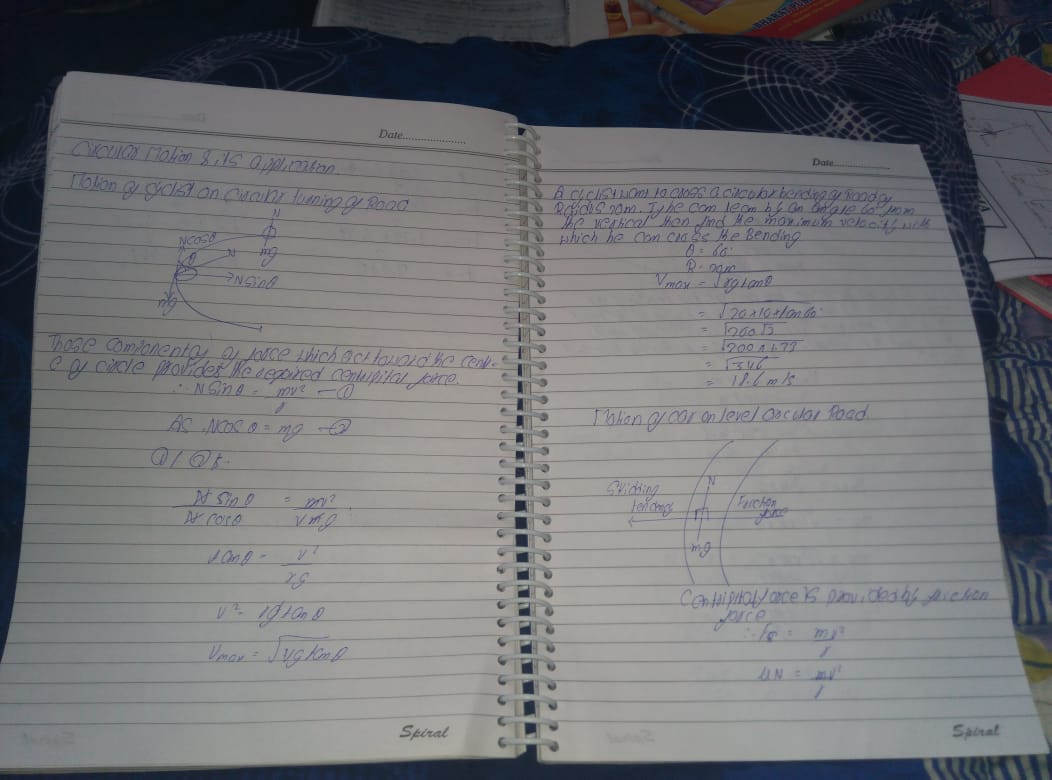 Date..............
Circular Motion & its application.
Motion of cyclist on circular turning of Road
N
Ncosθ
θ
N
mg
Nsinθ
mg
Those components of force which act toward the centr-
e of circle provides the required centripital force.
∴ N sinθ = mv²/r — ①
As, Ncosθ = mg — ②
① / ②
N sinθ / N cosθ = mv² / r mg
tanθ = v² / rg
v² = rg tanθ
Vmax = √rg tanθ
Spiral
Date..............
A ciclist want to cross a circular bending of Road of
Radius 20m. If he can leam by an angle 60° from
the vertical then find the maximum velocity with
which he can cross the Bending
θ = 60°
R = 20m
Vmax = √rg tanθ
= √20×10×tan60°
= √200√3
= √200×1.73
= √346
= 18.6 m/s
Motion of car on level circular Road
N
Skidding
tendency
Friction
force
mg
Centripital force is provided by friction
force
mv²/r
μN = mv²/r
Spiral